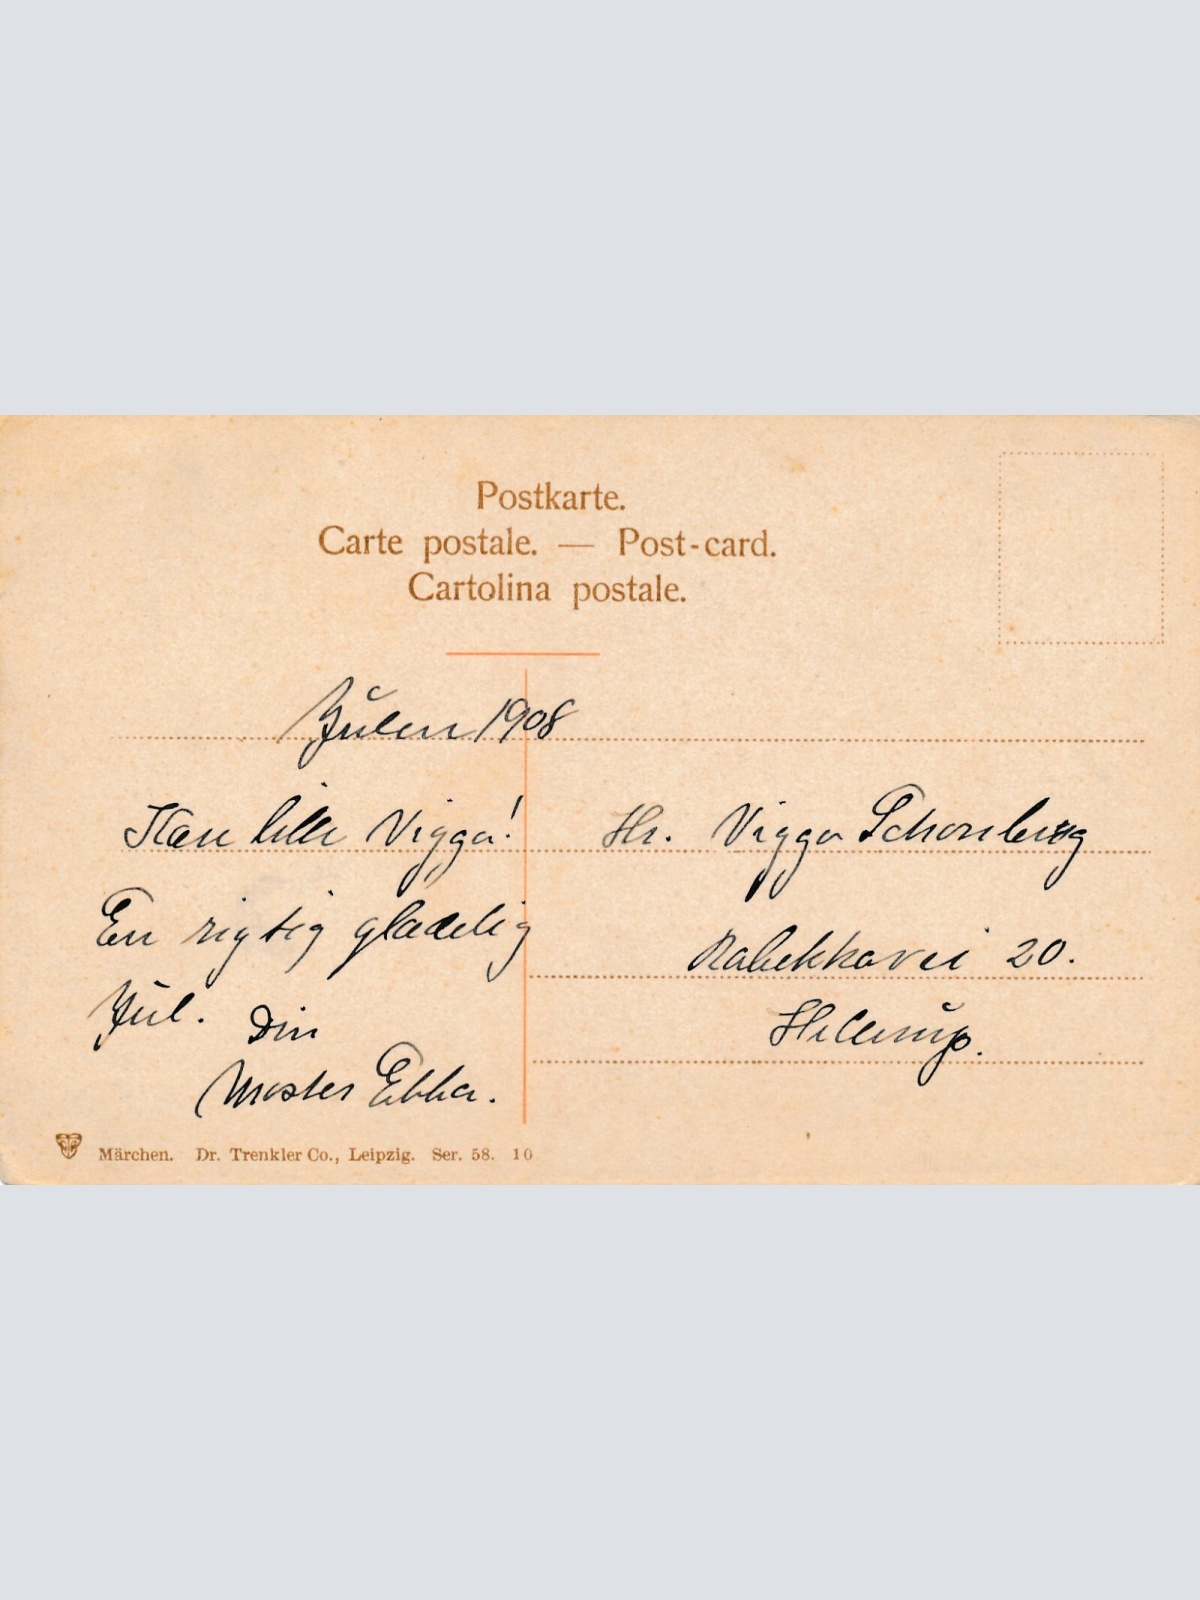 Postkarte.
Carte postale. — Post-card.
Cartolina postale.
Julen 1908
Kære lille Viggo!
En rigtig glædelig
Jul. Din
Moster Ebba.
Hr. Viggo Schonberg
Rabekkavei 20.
Hellerup.
Märchen. Dr. Trenkler Co., Leipzig. Ser. 58. 10